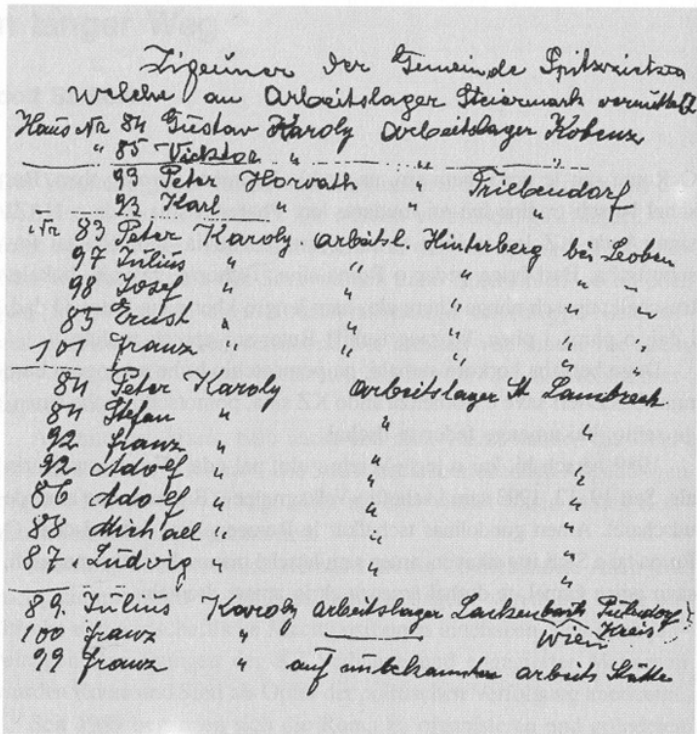 Zigeuner der Gemeinde Spitzzicken
welche am Arbeitslager Steiermark vermittelt
Haus Nr 84 Gustav Karoly Arbeitslager Kobenz
" 85 Vicktor " " "
93 Peter Horvath " Triebendorf
93 Karl " " "
Nr 83 Peter Karoly Arbeitsl. Hinterberg bei Leoben
97 Julius " " " " "
98 Josef " " " " "
85 Ernst " " " " "
101 Franz " " " " "
84 Peter Karoly Arbeitslager St Lambrech
84 Stefan " " "
92 Franz " " "
92 Adolf " " "
86 Adolf " " "
88 Michael " " "
87 Ludwig " " "
89. Julius Karoly Arbeitslager
100 Franz " Wien Kreis
99 Franz " auf unbekannten Arbeits Stätte